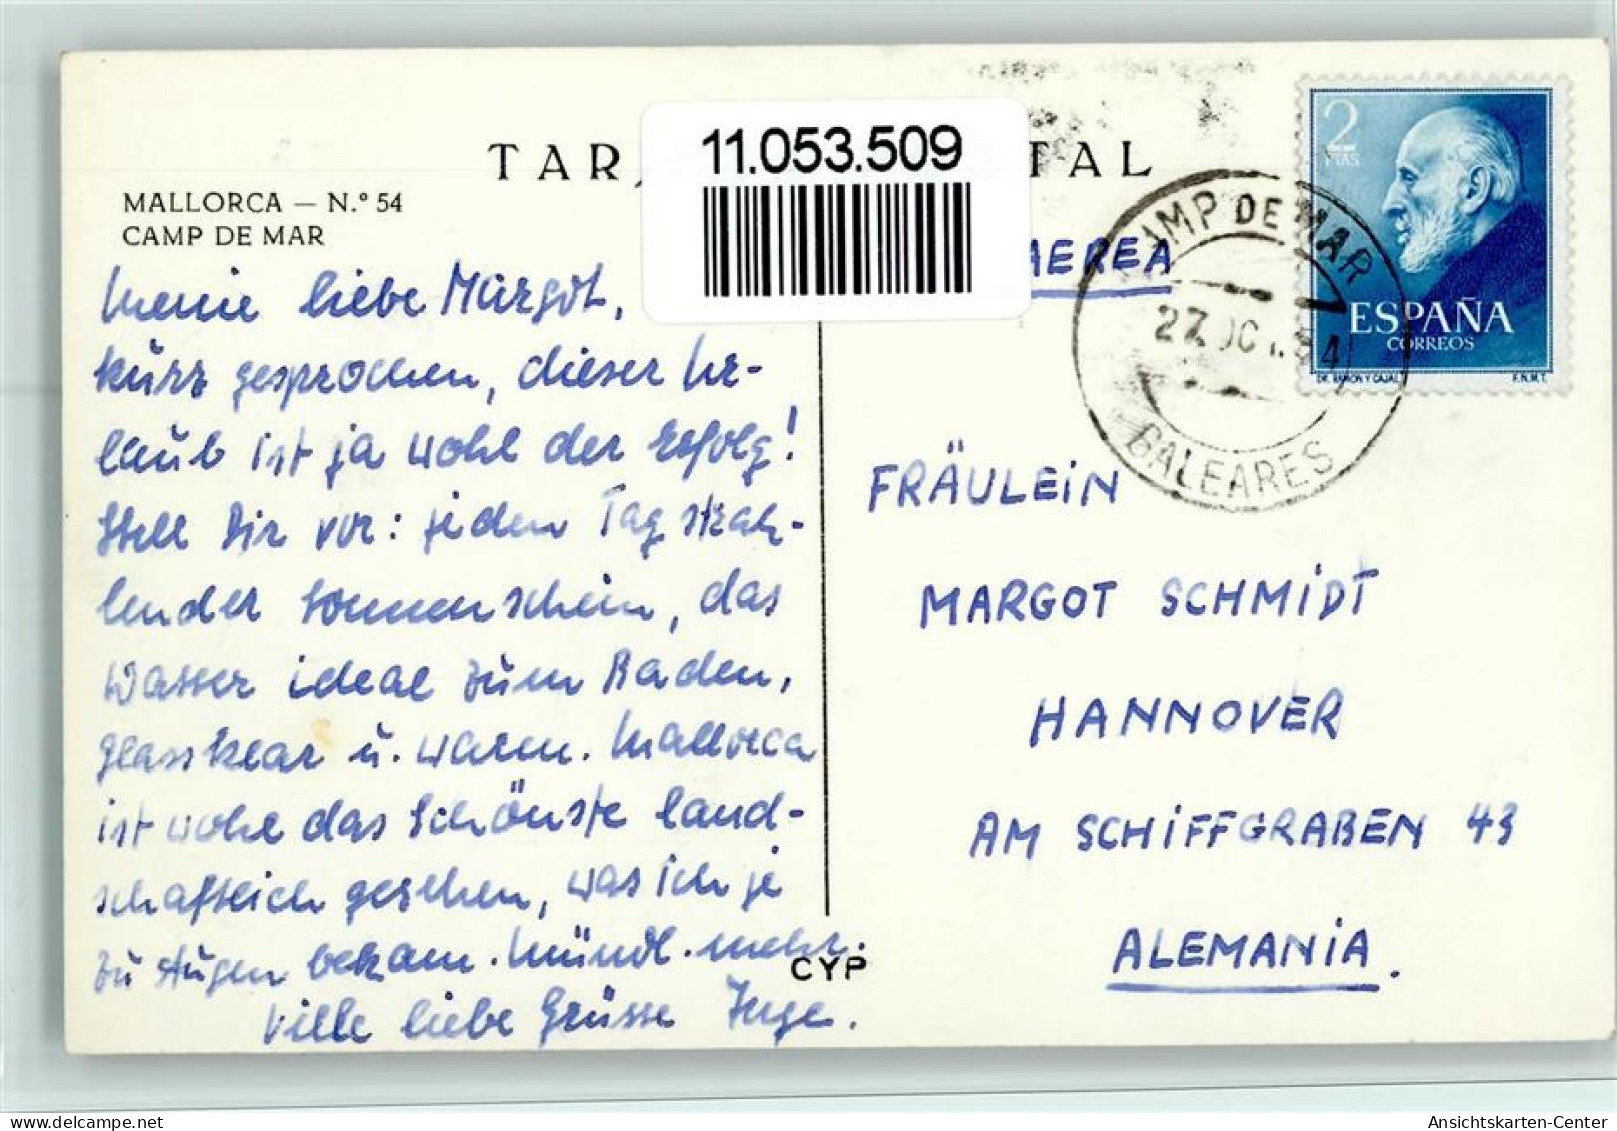 11.053.509
TAR TAL
MALLORCA — N.º 54
CAMP DE MAR
AEREA
CAMP DE MAR
27. OCT. 54
BALEARES
2
PTAS
ESPAÑA
CORREOS
DR. RAMON Y CAJAL F.N.M.T.
Meine liebe Margot,
kurz gesprochen, dieser Ur-
laub ist ja wohl der Erfolg!
Stell Dir vor: jeden Tag strah-
lender Sonnenschein, das
Wasser ideal zum Baden,
glasklar u. warm. Mallorca
ist wohl das Schönste land-
schaftlich gesehen, was ich je
zu Augen bekam. Mündl. mehr.
Viele liebe Grüsse Inge.
CYP
FRÄULEIN
MARGOT SCHMIDT
HANNOVER
AM SCHIFFGRABEN 43
ALEMANIA.
www.delcampe.net
Ansichtskarten-Center